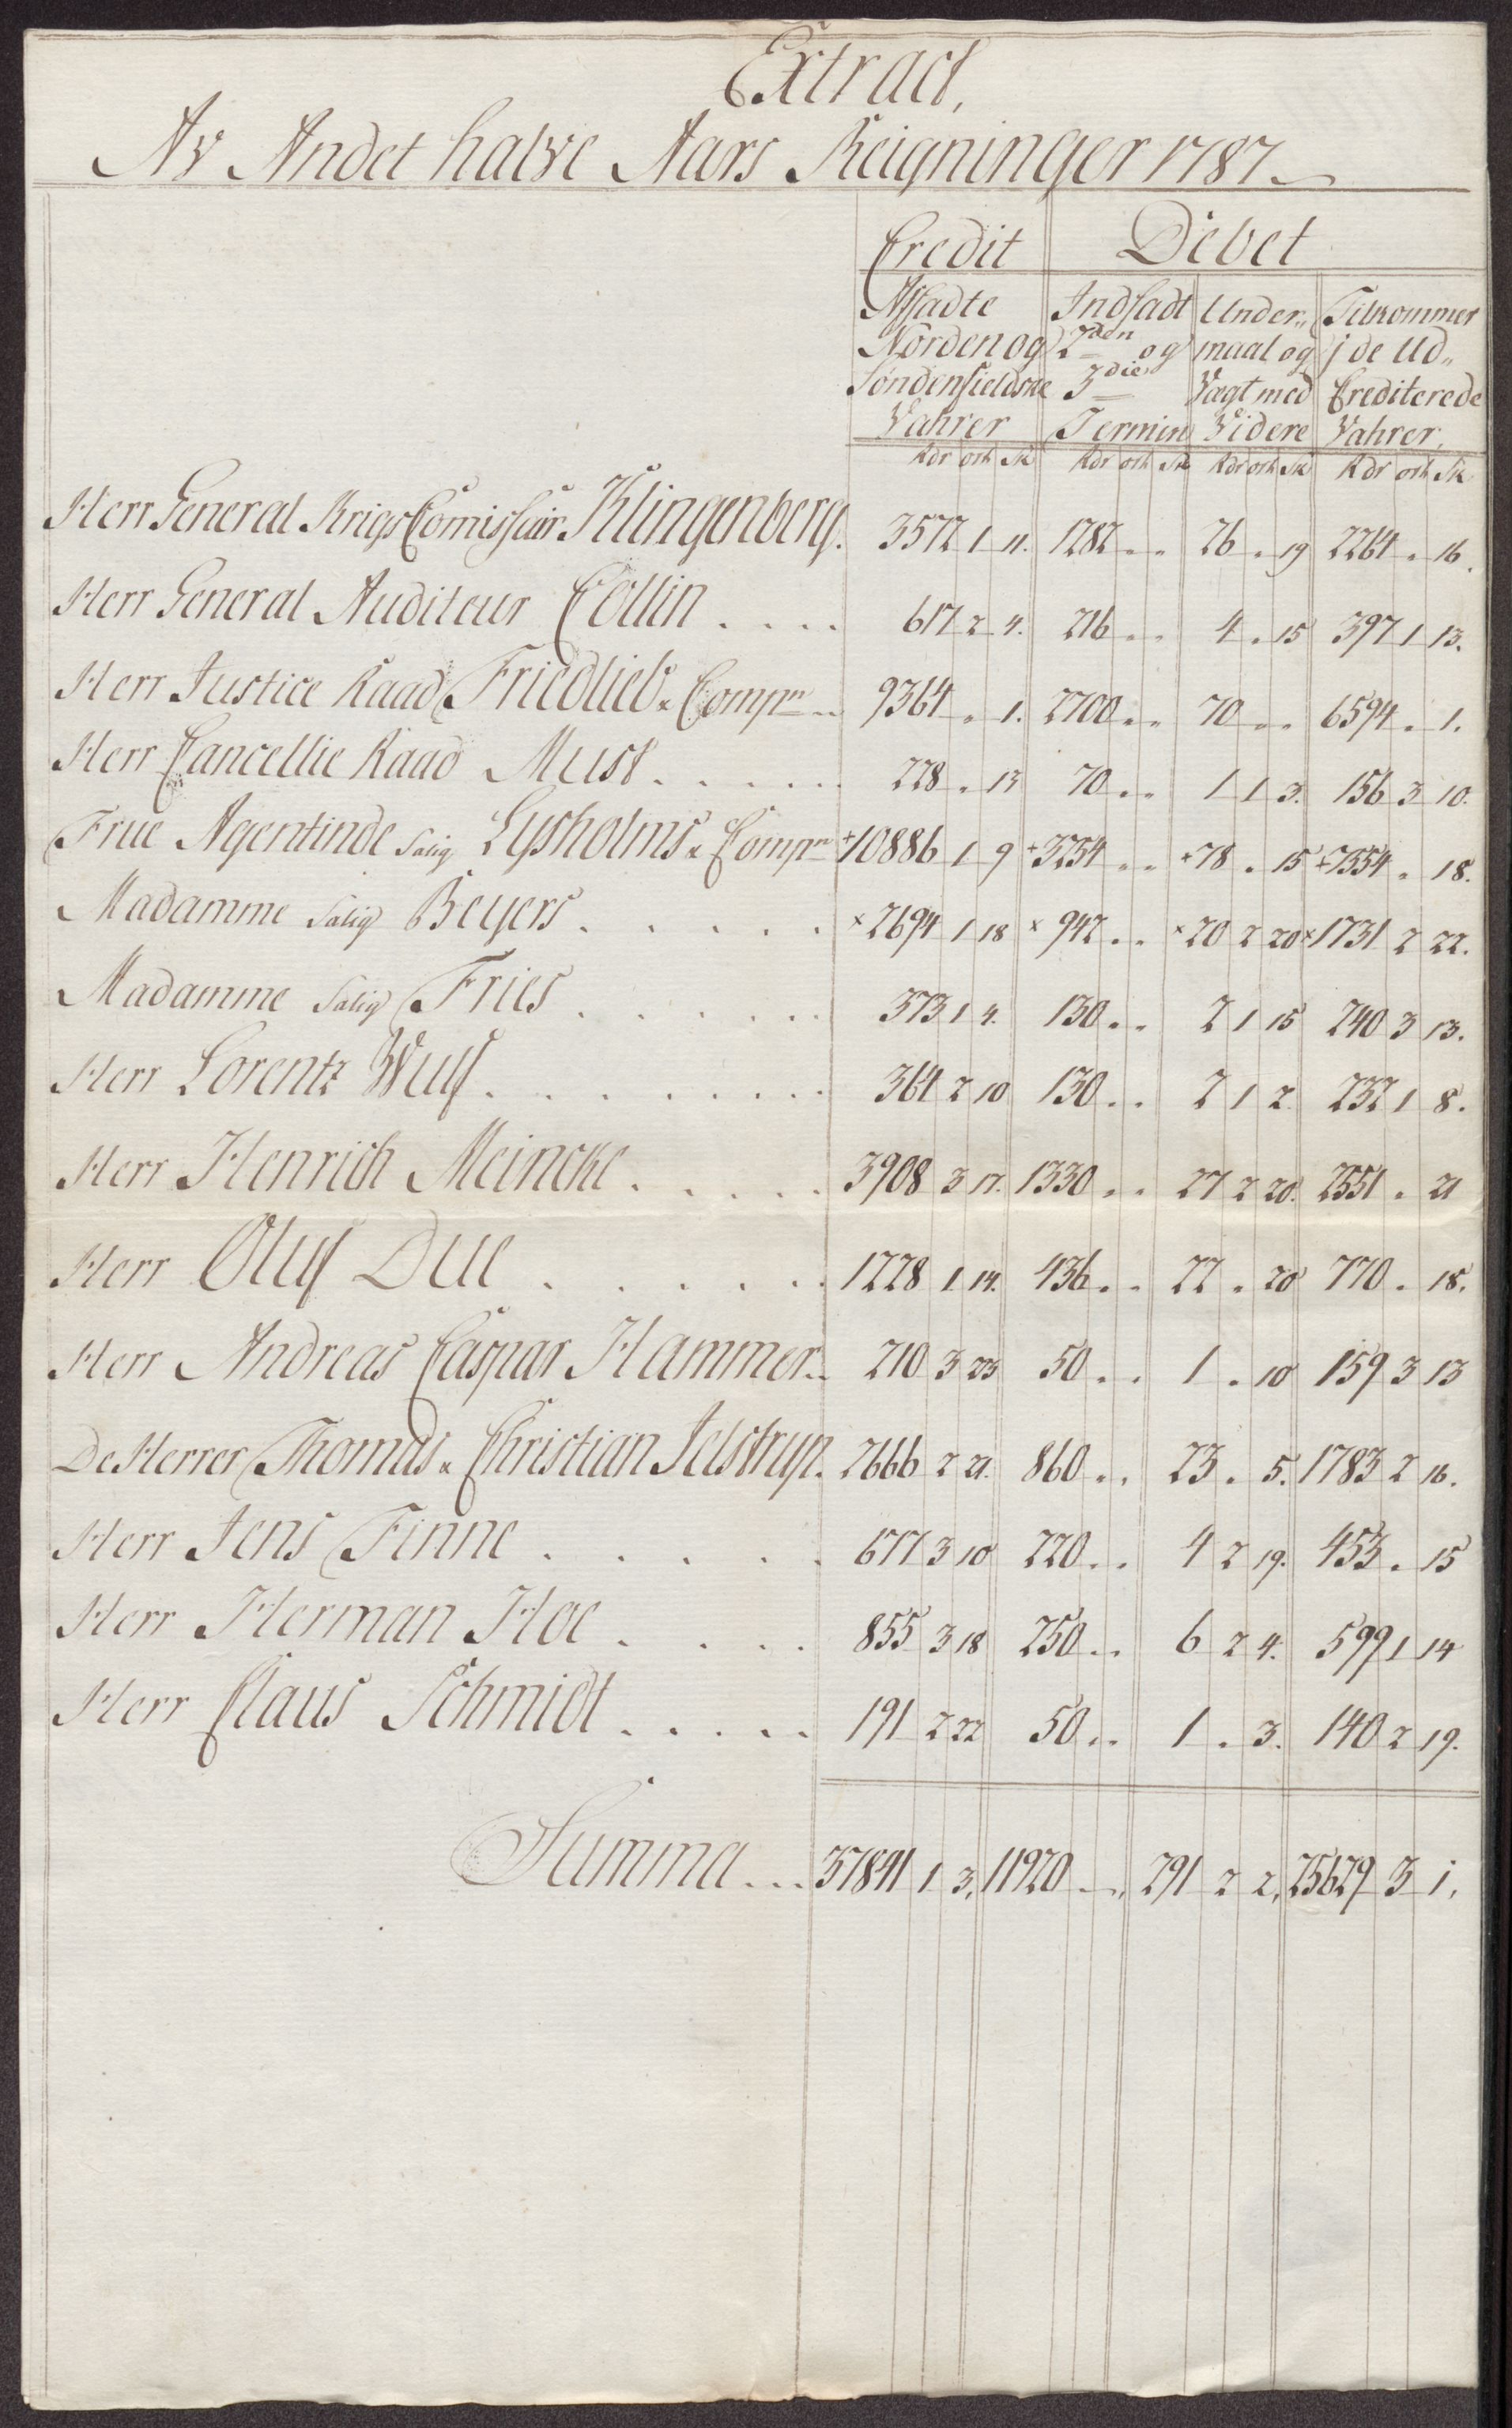 Extract,
Av Andet halve Aars Reigninger 1787
Credit Debet
Afsadte Indsadt Under„ Tilkommer
Norden og 2den og maal og j de Ud„
Søndenfieldske 3die Vægt med Crediterede
Vahrer Termin Videre Vahrer,
Rdr ort Sk Rdr ort Sk Rdr ort Sk Rdr ort Sk
Herr General Krigs Comissair Klingenberg. 3572 1 11. 1282 .. .. 26 . 19 2264 . 16.
Herr General Auditeur Collin . . . . 617 2 4. 216 .. .. 4 . 15 397 1 13.
Herr Justice Raad Friedlieb & Compn .. 9364 . 1. 2700 .. .. 70 .. .. 6594 . 1.
Herr Cancellie Raad Must . . . . . 228 . 13 70 .. .. 1 1 3. 156 3 10.
Frue Agentinde Salig Lysholms & Compn +10886 1 9 +3254 .. .. +78 . 15 +7554 . 18.
Madamme Salig Beyers . . . . . ×2694 1 18 ×942 .. .. ×20 2 20 ×1731 2 22.
Madamme Salig Fries . . . . . . 373 1 4. 130 .. .. 2 1 15 240 3 13.
Herr Lorentz Wulf . . . . . . . . 364 2 10 130 .. .. 2 1 2. 232 1 8.
Herr Henrich Meincke . . . . . 3908 3 17. 1330 .. .. 27 2 20. 2551 . 21
Herr Oluf Due . . . . . . 1228 1 14. 436 .. .. 22 . 20 770 . 18.
Herr Andreas Caspar Hammer .. 210 3 23 50 .. .. 1 . 10 159 3 13
De Herrer Thomas & Christian Jelstrup. 2666 2 21. 860 .. .. 23 . 5. 1783 2 16.
Herr Jens Finne . . . . . 677 3 10 220 .. .. 4 2 19. 453 . 15
Herr Herman Hoe . . . . 855 3 18 250 .. .. 6 2 4. 599 1 14
Herr Claus Schmidt . . . . . 191 2 22 50 .. .. 1 . 3. 140 2 19.
Summa ... 37841 1 3, 11920 — „ 291 2 2, 25629 3 1,